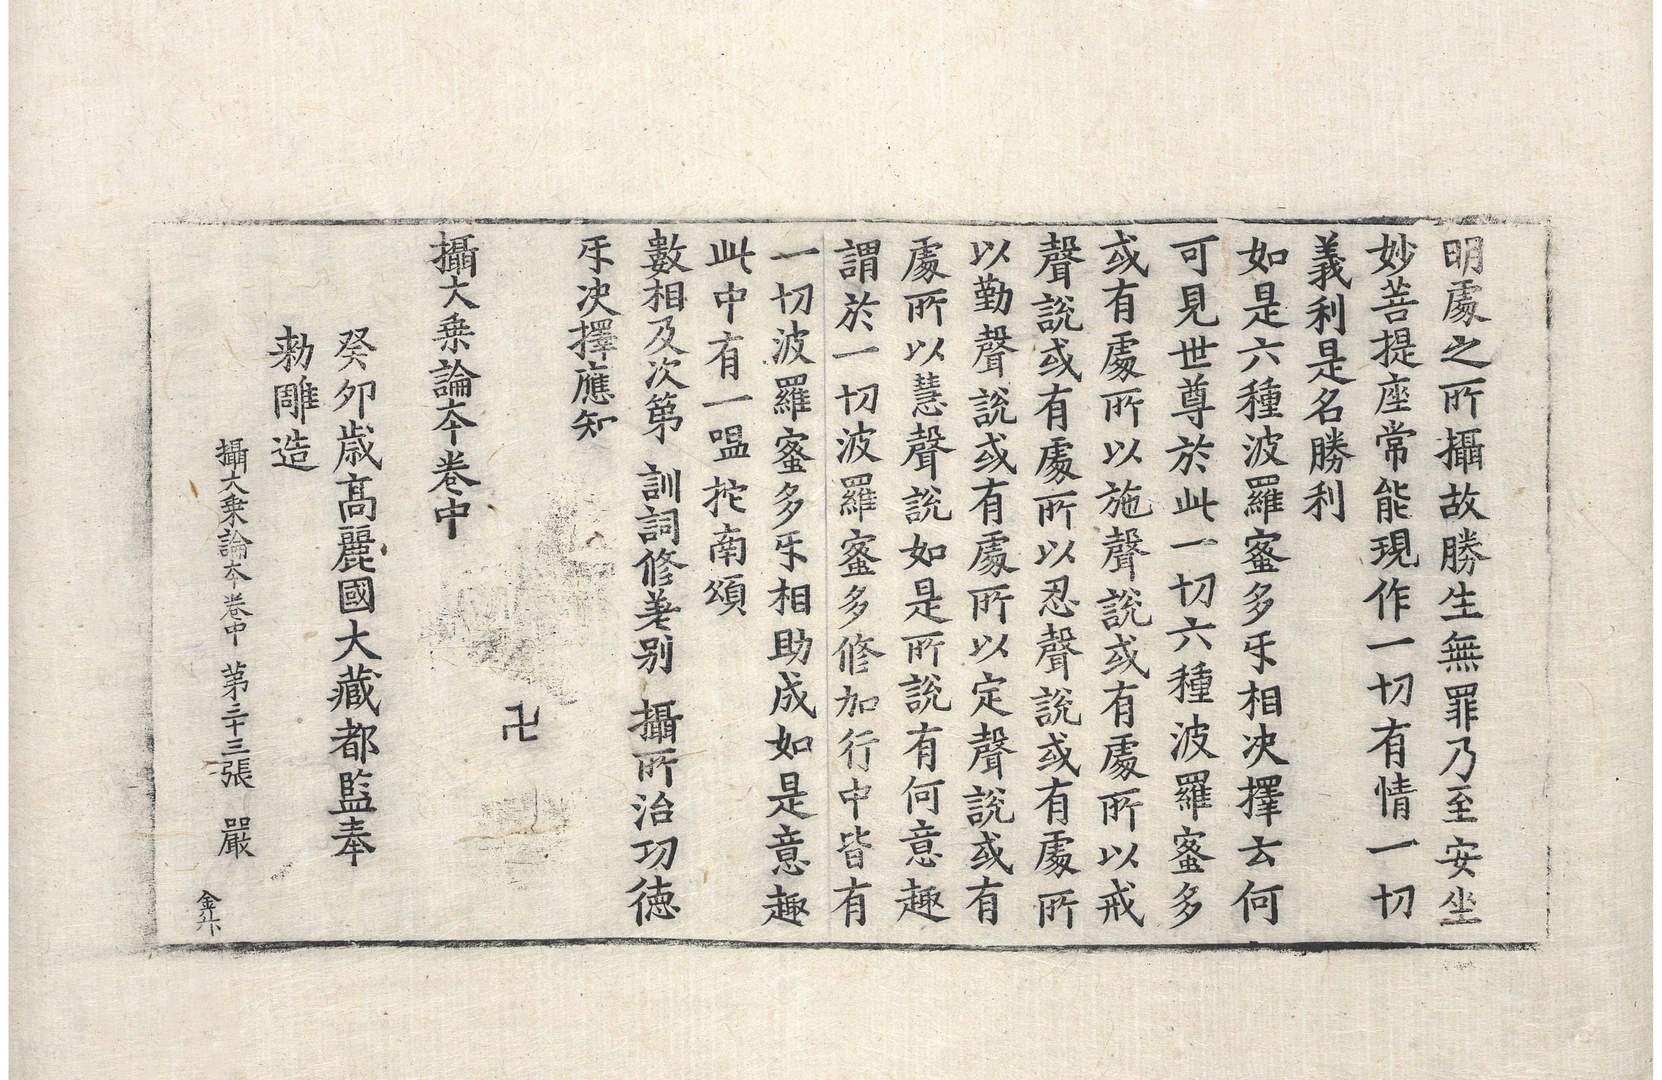 明處之所攝故勝生無罪乃至安坐
妙菩提座常能現作一切有情一切
義利是名勝利
如是六種波羅蜜多㸦相决擇云何
可見世尊於此一切六種波羅蜜多
或有處所以施聲說或有處所以戒
聲說或有處所以忍聲說或有處所
以勤聲說或有處所以定聲說或有
處所以慧聲說如是所說有何意趣
謂於一切波羅蜜多修加行中皆有
一切波羅蜜多㸦相助成如是意趣
此中有一嗢拕南頌
數相及次第 訓詞修差别 攝所治功德
㸦决擇應知
卍
攝大乗論本卷中
癸卯歳高麗國大藏都監奉
勑雕造
攝大乗論本卷中 第三十三張 嚴
金升